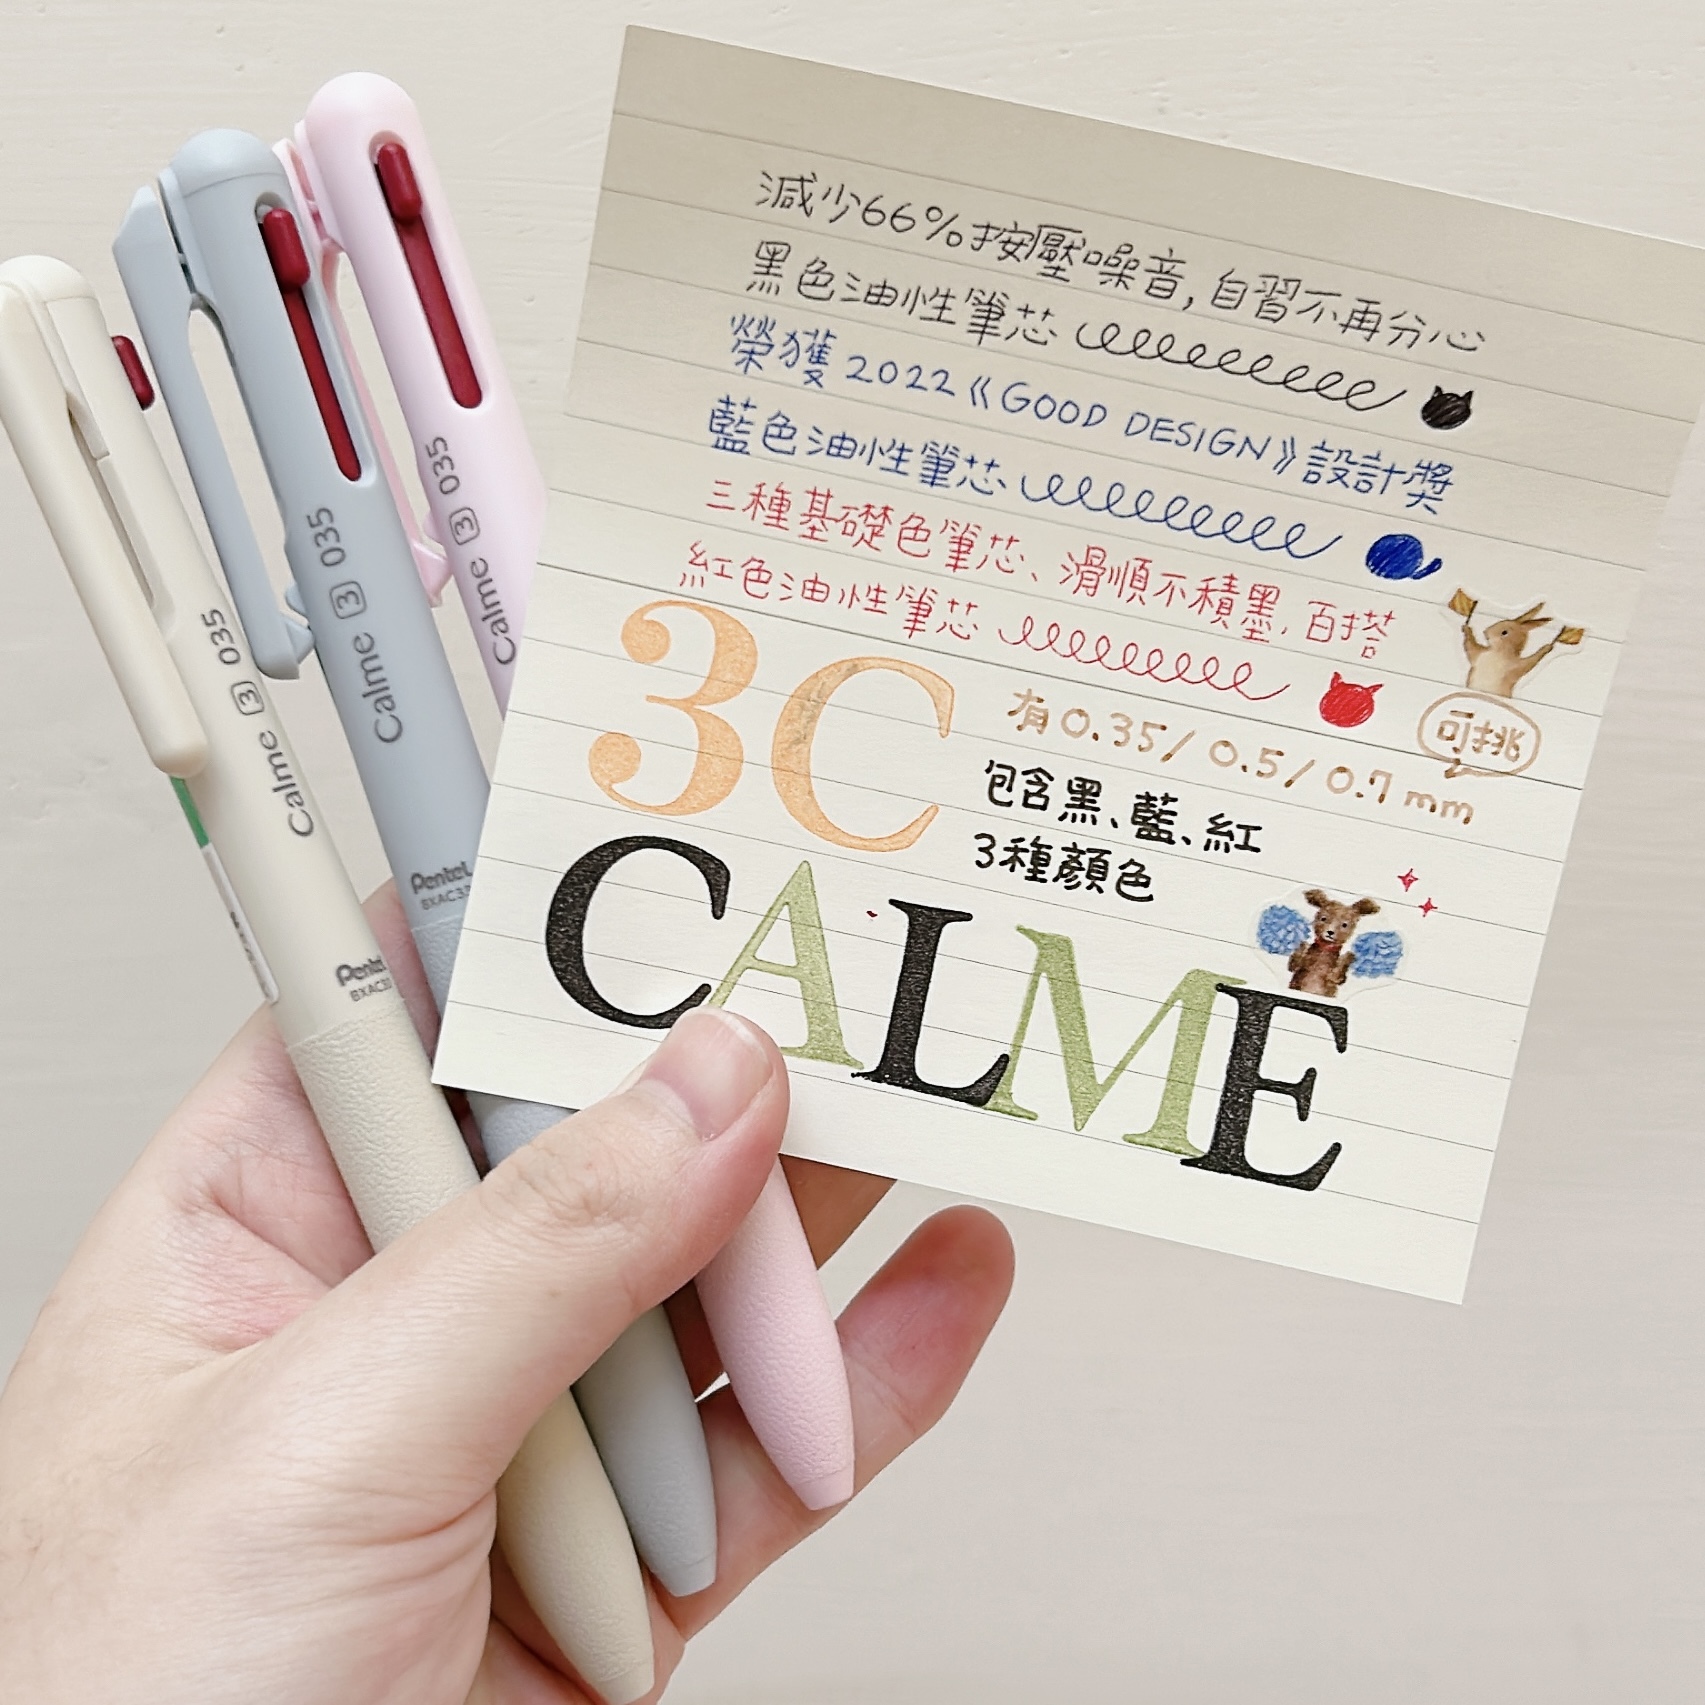 減少66%按壓噪音,自習不再分心
黑色油性筆芯
榮獲2022《GOOD DESIGN》設計獎
藍色油性筆芯
三種基礎色筆芯、滑順不積墨,百搭
紅色油性筆芯
3C
有0.35/0.5/0.7mm
可挑
包含黑、藍、紅
3種顏色
CALME
Calme 3 035
Pentel
Calme 3 035
Pentel
Calme 3 035